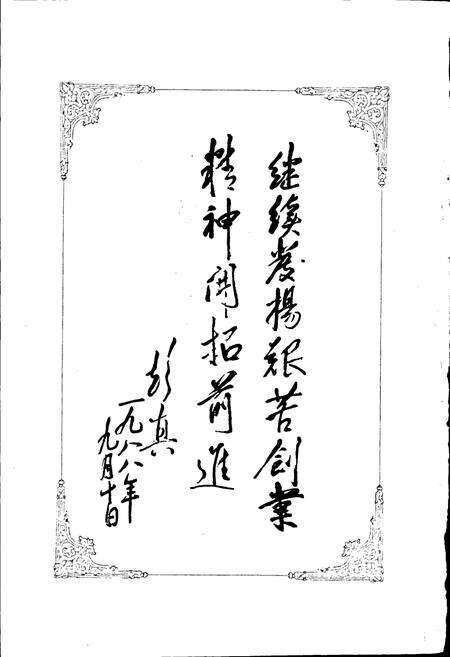 继续发扬艰苦创业
精神开拓前进
彭真
一九八八年
九月十日